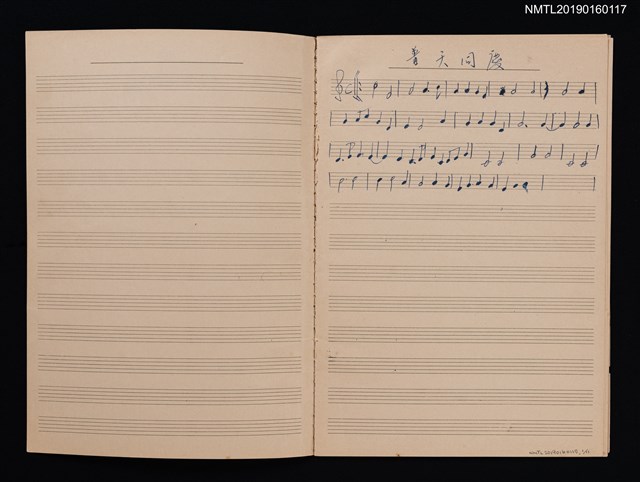 NMTL20190160117
普天同慶